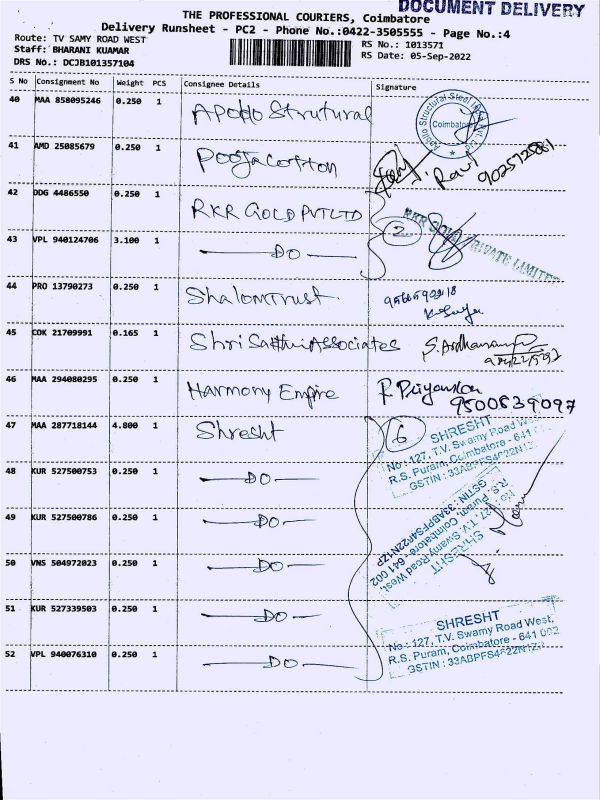 DOCUMENT DELIVERY
THE PROFESSIONAL COURIERS, Coimbatore
Delivery Runsheet - PC2 - Phone No.:0422-3505555 - Page No.:4
Route: TV SAMY ROAD WEST
Staff: BHARANI KUAMAR
DRS No.: DCJB101357104
RS No.: 1013571
RS Date: 05-Sep-2022
S No Consignment No Weight PCS Consignee Details Signature
40 MAA 858095246 0.250 1 Apollo Strutural
Coimbatore
41 AMD 25085679 0.250 1 Pooja Cotton Ravi
42 DDG 4486550 0.250 1 RKR GOLD PVT LTD
43 VPL 940124706 3.100 1 DO 2
RKR GOLD PRIVATE LIMITED
44 PRO 13790273 0.250 1 Shalom Trust
45 COK 21709991 0.165 1 Shri Sakthi Associates
46 MAA 294080295 0.250 1 Harmony Empire
9500839097
47 MAA 287718144 4.800 1 Shresht 6
SHRESHT
No : 127, T.V. Swamy Road West,
R.S. Puram, Coimbatore - 641
48 KUR 527500753 0.250 1 DO
49 KUR 527500786 0.250 1 DO
SHRESHT
No : 127, T.V. Swamy Road West,
R.S. Puram, Coimbatore - 641 002
50 VNS 504972023 0.250 1 DO
51 KUR 527339503 0.250 1 DO
SHRESHT
No : 127, T.V. Swamy Road West,
R.S. Puram, Coimbatore - 641 002
52 VPL 940076310 0.250 1 DO